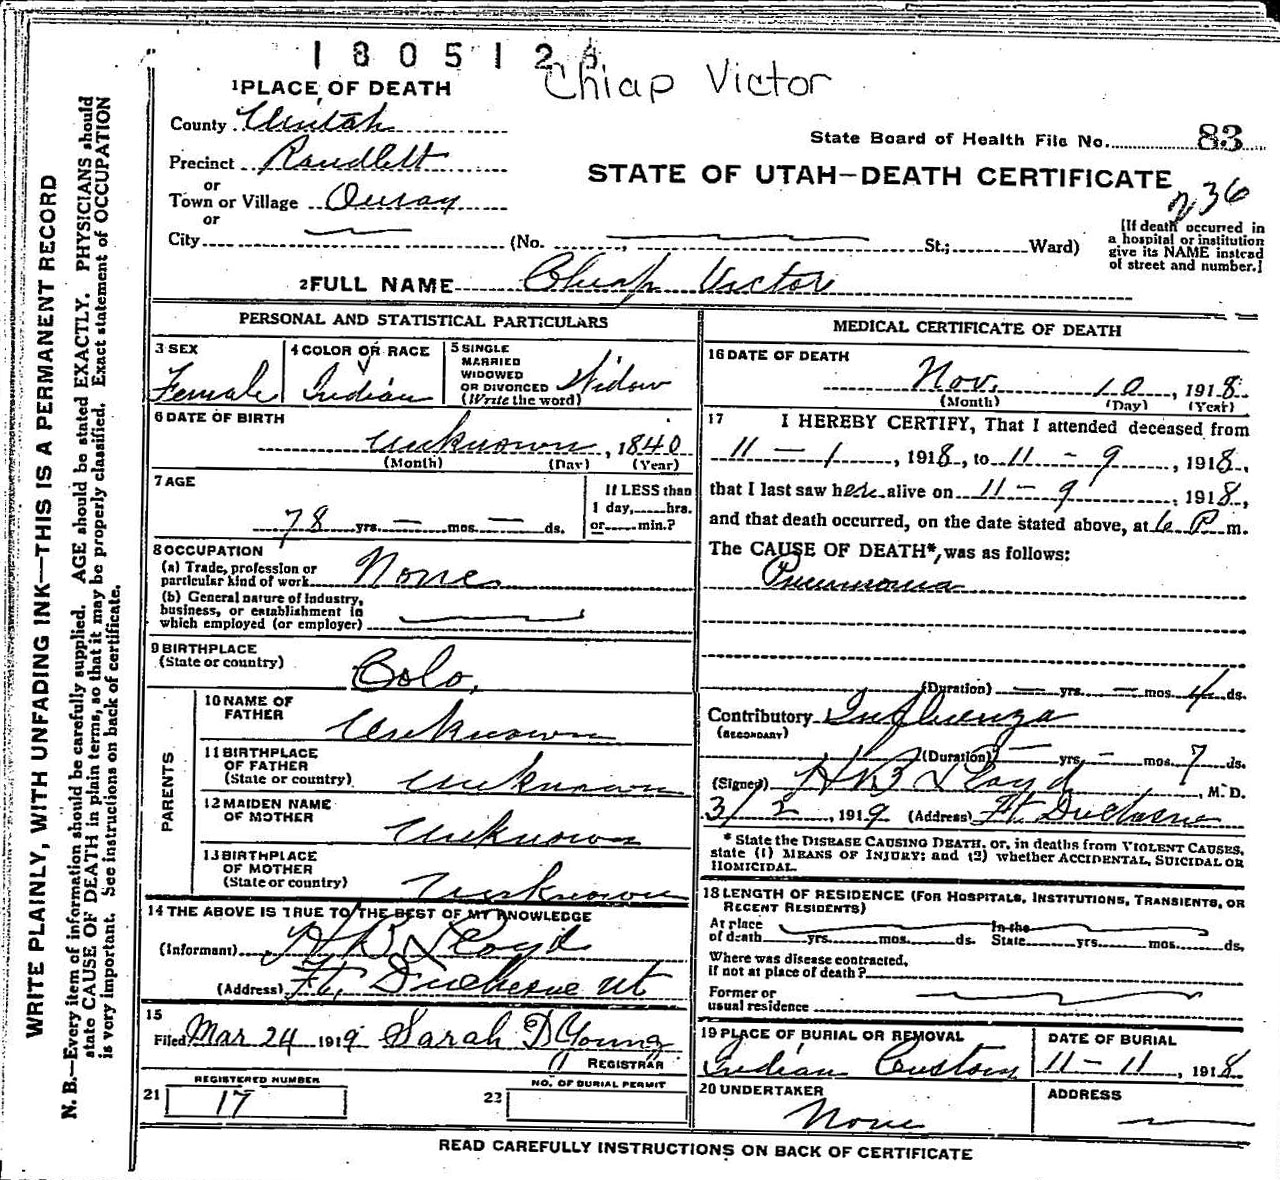 1805124
Chiap Victor
1 PLACE OF DEATH
County Uintah
State Board of Health File No. 83
Precinct Randlett
STATE OF UTAH—DEATH CERTIFICATE
236
or
Town or Village Ouray
or
City (No. , St.; Ward)
[If death occurred in
a hospital or institution
give its NAME instead
of street and number.]
2 FULL NAME Chiap Victor
PERSONAL AND STATISTICAL PARTICULARS
3 SEX
Female
4 COLOR OR RACE
Indian
5 SINGLE
MARRIED
WIDOWED
OR DIVORCED
(Write the word)
Widow
6 DATE OF BIRTH
unknown, 1840
(Month) (Day) (Year)
7 AGE
78 yrs. — mos. — ds.
If LESS than
1 day, hrs.
or min.?
8 OCCUPATION
(a) Trade, profession or
particular kind of work None
(b) General nature of Industry,
business, or establishment in
which employed (or employer)
9 BIRTHPLACE
(State or country)
Colo.
PARENTS
10 NAME OF
FATHER
Unknown
11 BIRTHPLACE
OF FATHER
(State or country) unknown
12 MAIDEN NAME
OF MOTHER
Unknown
13 BIRTHPLACE
OF MOTHER
(State or country) Unknown
14 THE ABOVE IS TRUE TO THE BEST OF MY KNOWLEDGE
(Informant) H B Lloyd
(Address) Ft. Duchesne ut
15
Filed Mar 24 1919 Sarah D Young
REGISTRAR
21 REGISTERED NUMBER
17
22 NO. OF BURIAL PERMIT
MEDICAL CERTIFICATE OF DEATH
16 DATE OF DEATH
Nov. 10, 1918
(Month) (Day) (Year)
17 I HEREBY CERTIFY, That I attended deceased from
11 — 1, 1918, to 11 — 9, 1918,
that I last saw her alive on 11 — 9, 1918,
and that death occurred, on the date stated above, at 6 P m.
The CAUSE OF DEATH*, was as follows:
Pneumonia
(Duration) — yrs. — mos. 4 ds.
Contributory Influenza
(SECONDARY)
(Duration) — yrs. — mos. 7 ds.
(Signed) H B Lloyd, M. D.
3/2, 1919 (Address) Ft. Duchesne
* State the DISEASE CAUSING DEATH, or, in deaths from VIOLENT CAUSES,
state (1) MEANS OF INJURY; and (2) whether ACCIDENTAL, SUICIDAL OR
HOMICIDAL.
18 LENGTH OF RESIDENCE (FOR HOSPITALS, INSTITUTIONS, TRANSIENTS, OR
RECENT RESIDENTS)
At place In the
of death yrs. mos. ds. State yrs. mos. ds.
Where was disease contracted,
if not at place of death?
Former or
usual residence
19 PLACE OF BURIAL OR REMOVAL
Indian Custom
DATE OF BURIAL
11 — 11, 1918
20 UNDERTAKER
None
ADDRESS
READ CAREFULLY INSTRUCTIONS ON BACK OF CERTIFICATE
WRITE PLAINLY, WITH UNFADING INK—THIS IS A PERMANENT RECORD
N. B.—Every item of information should be carefully supplied. AGE should be stated EXACTLY. PHYSICIANS should
state CAUSE OF DEATH in plain terms, so that it may be properly classified. Exact statement of OCCUPATION
is very important. See instructions on back of certificate.